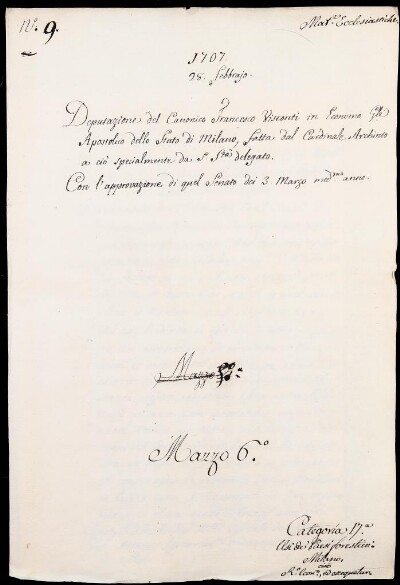 N.º 9.
Mat.e Ecclesiastiche.
1707
28. Febbrajo.
Deputazione del Canonico Francesco Visconti in Economo Gñle
Apostolico dello Stato di Milano, fatta dal Cardinale Archinto
a ciò specialmente da S. Stà delegato.
Con l'approvazione di quel Senato dei 3. Marzo med.mo anno.
Marzo
Mazzo 6.º
Categoria 17.a
Usi de' Paesi forestieri
Milano,